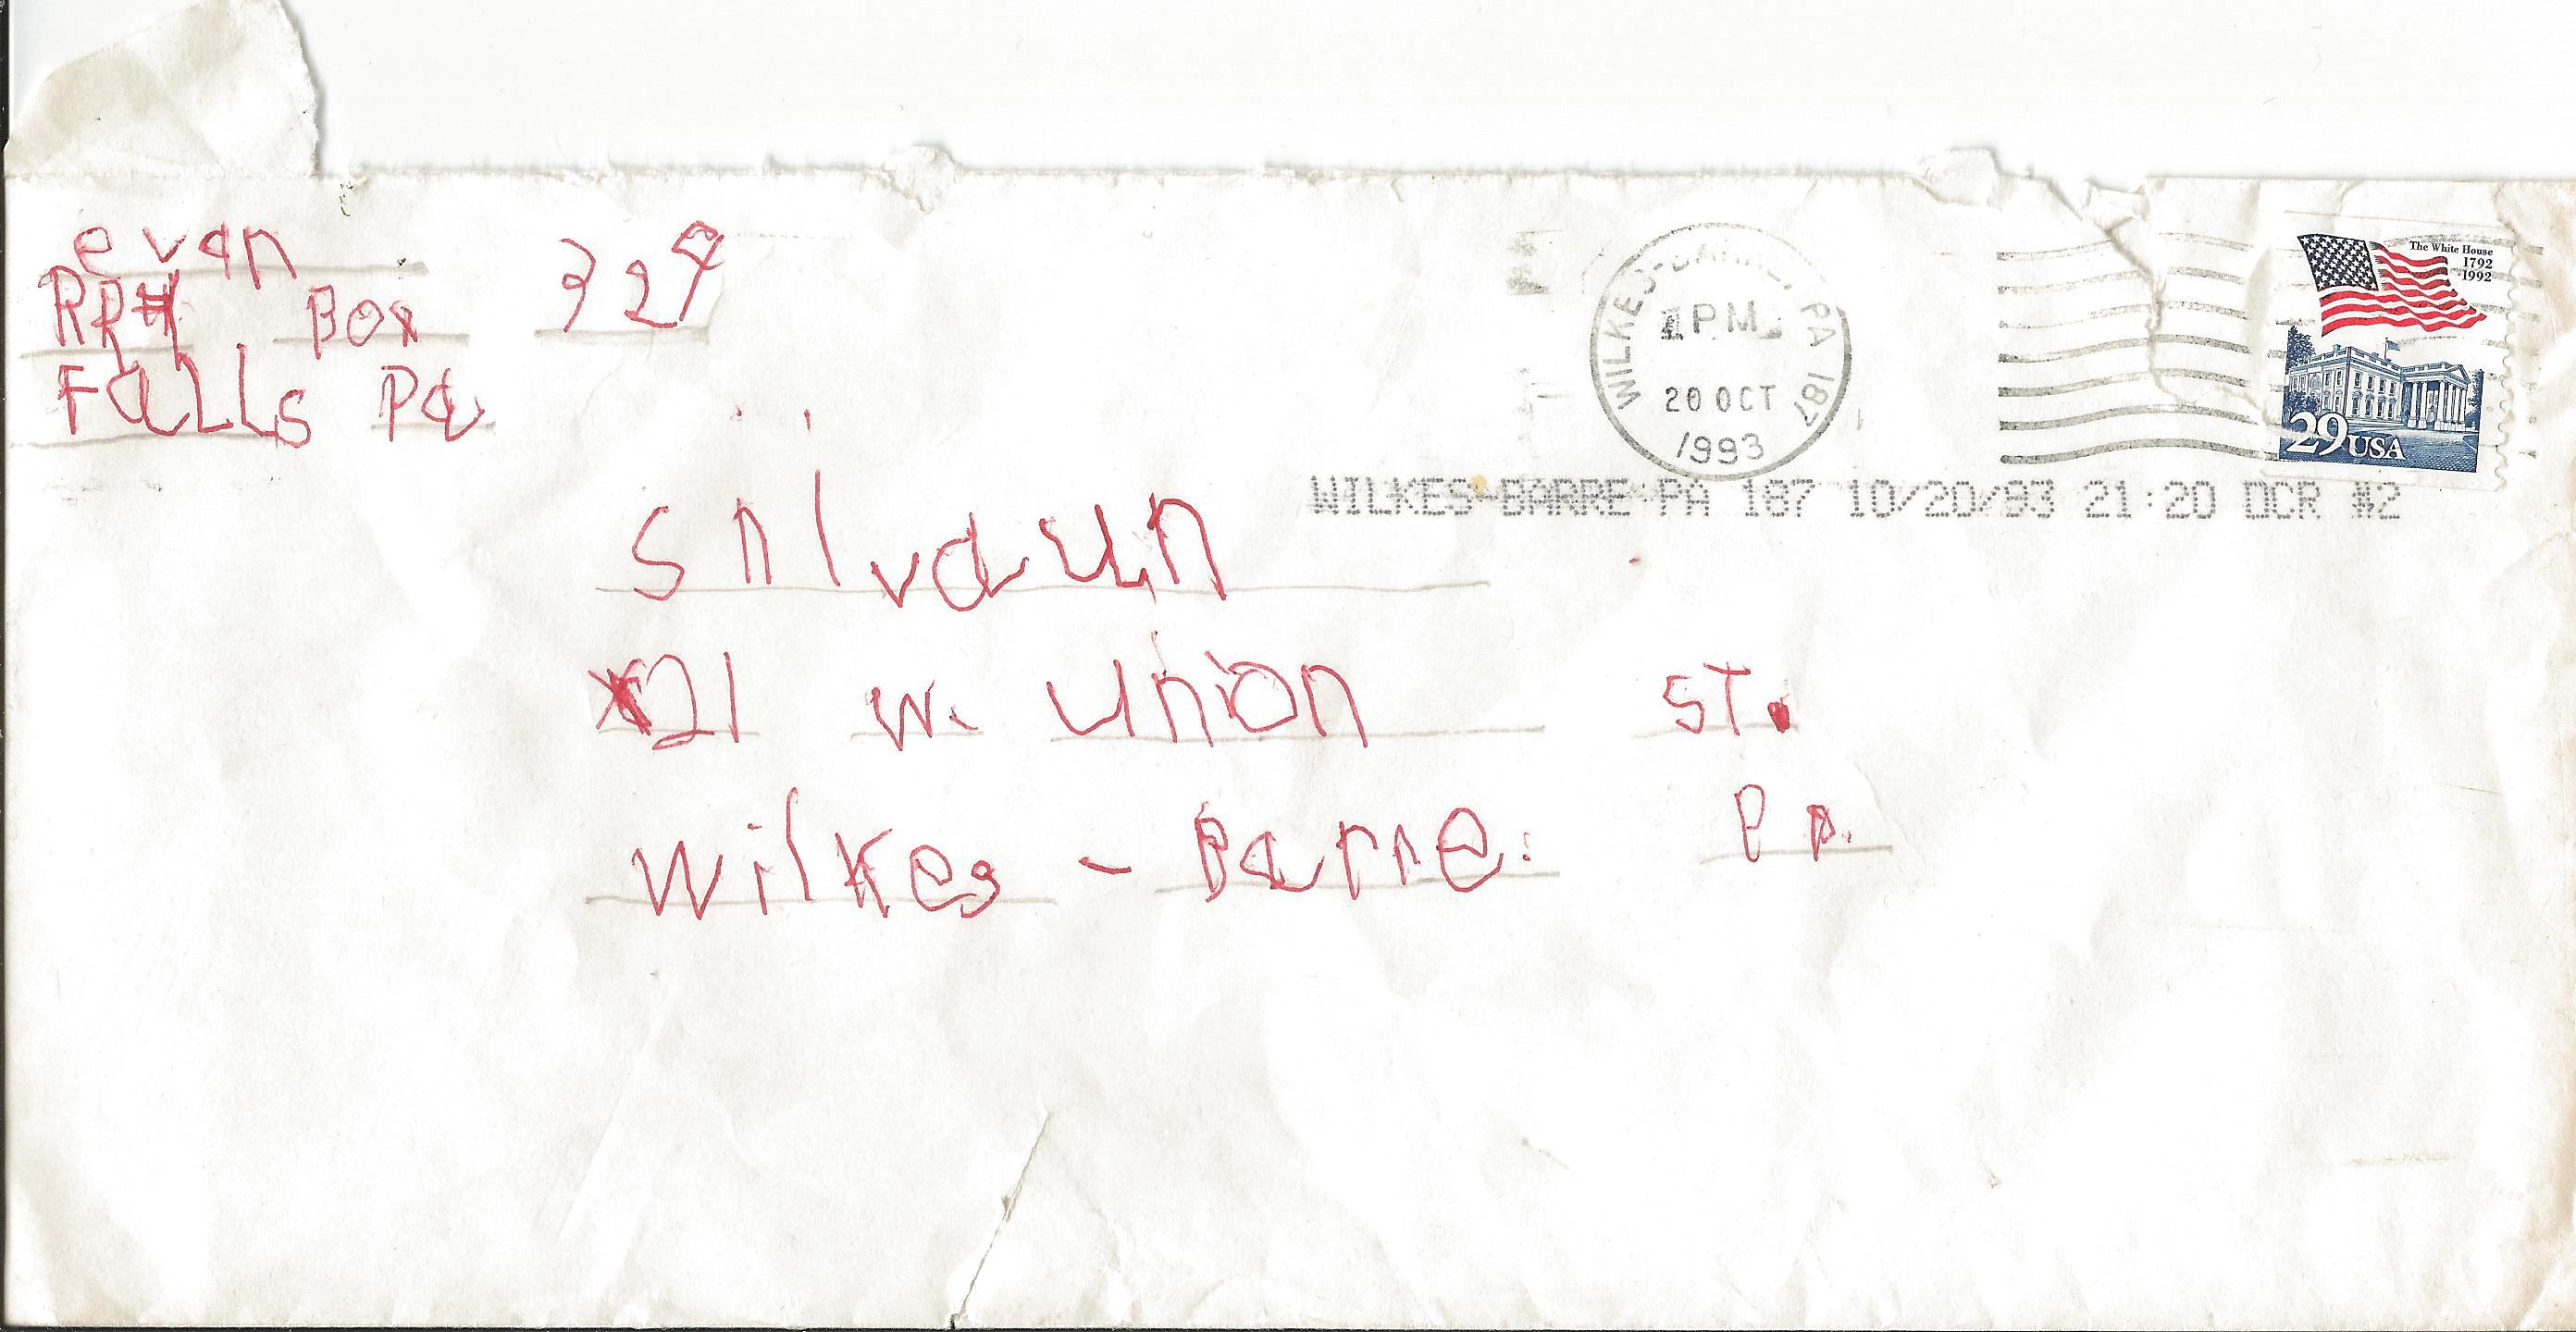 evan
RR# Box 329
Falls Pa.
The White House
1792
1992
29 USA
WILKES-BARRE, PA 187
PM
20 OCT
1993
WILKES-BARRE PA 187 10/20/93 21:20 OCR #2
21 W. Union ST.
Wilkes - Barre. Pa.